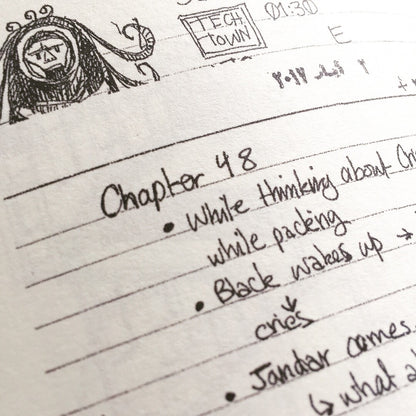 TECH
TOWN
01:30
E
٢٠١٧
Chapter 48
• While thinking about
while packing.
• Black wakes up →
cries
• Jandar comes
↳ what